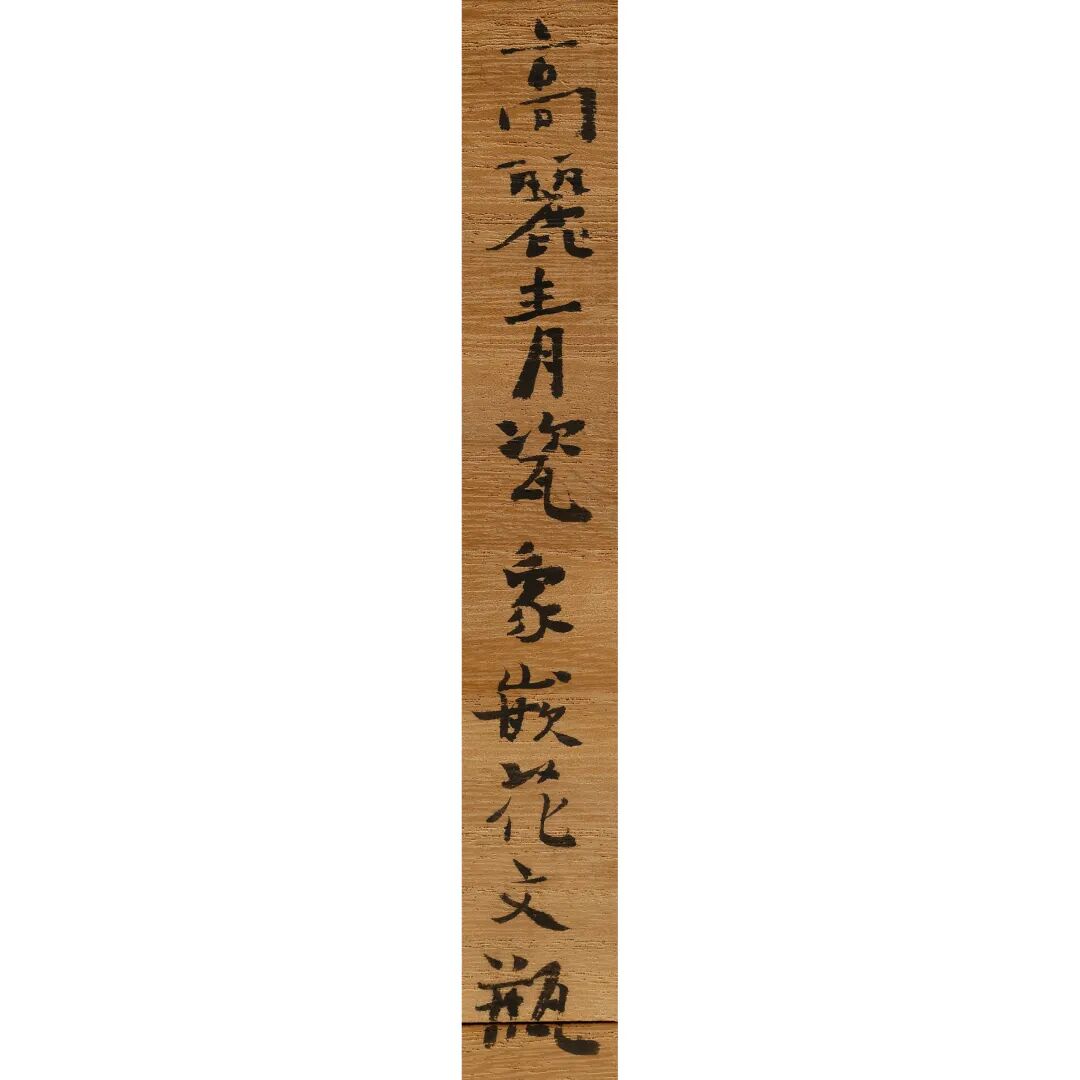 高麗青瓷象嵌花文瓶